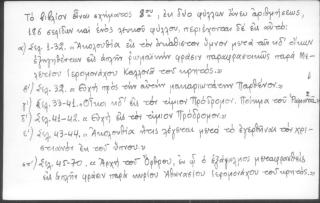 Τὸ βιβλίον εἶναι σχήματος 8ου, ἐκ δύο φύλλων ἄνευ ἀριθμήσεως,
126 σελίδων καὶ ἑνὸς λευκοῦ φύλλου, περιέχονται δὲ εἰς αὐτό:
α') Σελ. 1-32. "Ἀκολουθία εἰς τὸν ἀκάθιστον ὕμνον μετὰ τῶν κδ' οἴκων
ἐξηγηθέντων εἰς ἁπλῆν ῥωμαίικην φράσιν παραφραστικῶς παρὰ
Ἱερομονάχου τοῦ κρητός.»
β') Σελ. 32. « Εὐχὴ πρὸς τὴν αὐτὴν μακαριωτάτην Παρθένον».
γ') Σελ. 33-41. «Οἶκοι κδ' εἰς τὸν τίμιον Πρόδρομον. Ποίημα τοῦ
δ') Σελ. 41-42. « Εὐχὴ εἰς τὸν τίμιον Πρόδρομον».
ε') Σελ. 43-44. «Ἀκολουθία ἥτις λέγεται μετὰ τὸ ἐγερθῆναι τὸν χρι-
στιανὸν ἐκ τοῦ ὕπνου».
στ') Σελ. 45-70. « Ἀρχὴ τοῦ Ὄρθρου, ἐν ᾧ ὁ ἑξάψαλμος μεταφρασθεὶς
εἰς ἁπλῆν φράσιν παρὰ κυρίου Ἀθανασίου Ἱερομονάχου τοῦ κρητός.»